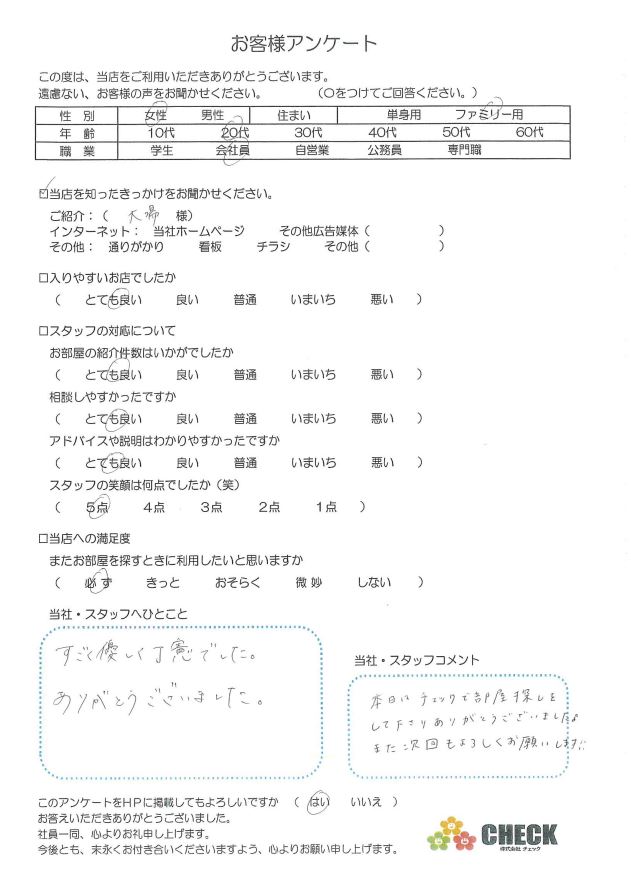 お客様アンケート
この度は、当店をご利用いただきありがとうございます。
遠慮ない、お客様の声をお聞かせください。 (〇をつけてご回答ください。)
性 別 女性 男性 住まい 単身用 ファミリー用
年 齢 10代 20代 30代 40代 50代 60代
職 業 学生 会社員 自営業 公務員 専門職
☑当店を知ったきっかけをお聞かせください。
ご紹介：( 様)
インターネット： 当社ホームページ その他広告媒体 ( )
その他： 通りがかり 看板 チラシ その他 ( )
□入りやすいお店でしたか
( とても良い 良い 普通 いまいち 悪い )
□スタッフの対応について
お部屋の紹介件数はいかがでしたか
( とても良い 良い 普通 いまいち 悪い )
相談しやすかったですか
( とても良い 良い 普通 いまいち 悪い )
アドバイスや説明はわかりやすかったですか
( とても良い 良い 普通 いまいち 悪い )
スタッフの笑顔は何点でしたか (笑)
( 5点 4点 3点 2点 1点 )
□当店への満足度
またお部屋を探すときに利用したいと思いますか
( 必ず きっと おそらく 微妙 しない )
当社・スタッフへひとこと
すごく優しく丁寧でした。
ありがとうございました。
当社・スタッフコメント
本日はチェックで部屋探しを
して下さりありがとうございました。
また次回もよろしくお願いします!!
このアンケートをHPに掲載してもよろしいですか ( はい いいえ )
お答えいただきありがとうございました。
社員一同、心よりお礼申し上げます。
今後とも、末永くお付き合いくださいますよう、心よりお願い申し上げます。
CHECK
株式会社 チェック